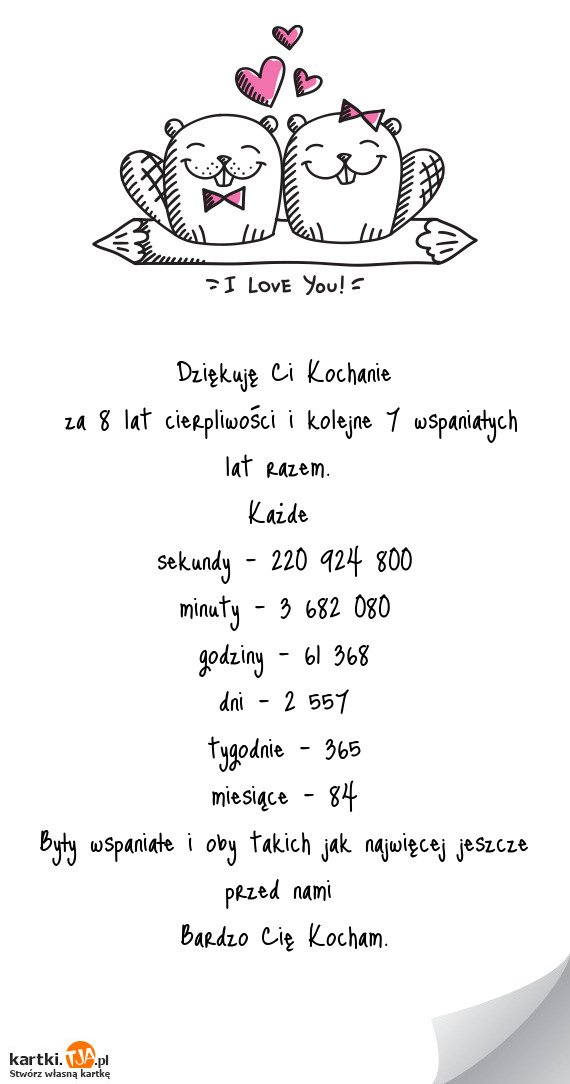 I LOVE YOU!
Dziękuję Ci Kochanie
za 8 lat cierpliwości i kolejne 7 wspaniałych
lat razem.
Każde
sekundy - 220 924 800
minuty - 3 682 080
godziny - 61 368
dni - 2 557
tygodnie - 365
miesiące - 84
Były wspaniałe i oby takich jak najwięcej jeszcze
przed nami
Bardzo Cię Kocham.
kartki.TJA.pl
Stwórz własną kartkę